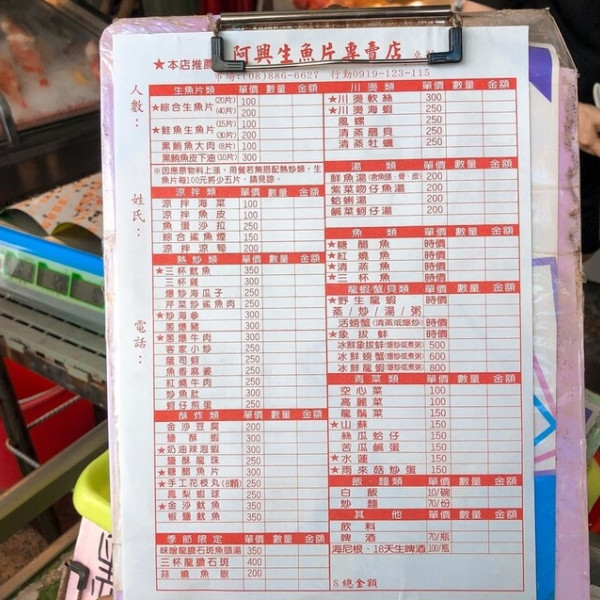 ★本店推薦
阿興生魚片專賣店
市場:(08)886-6627 行動0919-123-115
人數：
姓氏：
電話：
生魚片類 單價 數量 金額
★綜合生魚片 (20片) 100
(40片) 200
★鮭魚生魚片 (15片) 100
(30片) 200
黑鮪魚大肉(8片) 100
黑鮪魚皮下油(10片) 300
※因應原物料上漲，用餐若無搭配熱炒類，生魚片每100元將少五片，請見諒。
涼拌類 單價 數量 金額
涼拌海菜 100
涼拌魚皮 100
魚蛋沙拉 250
綜合鯊魚煙 150
涼拌涼筍 200
熱炒類 單價 數量 金額
★三杯魷魚 350
三杯雞 350
爆炒海瓜子 250
芹菜炒鯊魚肉 250
★炒海參 300
蔥爆豬 300
★蔥爆牛肉 300
客家小炒 250
蘿司蝦 250
魚香麻婆 250
紅燒牛肉 300
炒魚肚 300
蚵仔煎蛋 250
酥炸類 單價 數量 金額
金沙豆腐 200
鹽酥蝦 300
★奶油辣泡蝦 300
鹽酥龍珠 250
★糖醋魚片 300
★手工花枝丸(8顆) 250
鳳梨蝦球 250
★金沙魷魚
椒鹽魷魚
季節限定 單價 數量 金額
味噌龍膽石斑魚頭湯 350
三杯龍膽石斑 400
蒜燒魚眼 200
川燙類 單價 數量 金額
★川燙軟絲 300
★川燙海蝦 250
鳳螺 250
清蒸扇貝 250
清蒸牡蠣 250
湯類 單價 數量 金額
鮮魚湯(含魚頭、骨、皮) 200
紫菜吻仔魚湯 200
蛤蜊湯 200
鹹菜蚵仔湯 200
魚類 單價 數量 金額
★糖醋魚 時價
★紅燒魚 時價
★清蒸魚 時價
★三杯魚 時價
龍蝦蟹貝類 單價 數量 金額
★野生龍蝦 時價
蒸/炒/湯/粥
活螃蟹(清蒸或爆炒) 時價
★象拔蚌 時價
冰鮮象拔蚌(爆炒或煮粥) 500
冰鮮螃蟹(爆炒或煮粥) 600
冰鮮龍蝦(爆炒或煮粥) 800
青菜類 單價 數量 金額
空心菜 100
高麗菜 100
龍鬚菜 150
★山蘇 150
絲瓜蛤仔 150
苦瓜鹹蛋 150
★水蓮 150
★雨來菇炒蛋 150
飯、麵類 單價 數量 金額
白飯 10/碗
炒麵 70/份
其他 單價 數量 金額
飲料
啤酒 70/瓶
海尼根、18天生啤酒 100/瓶
S 總金額